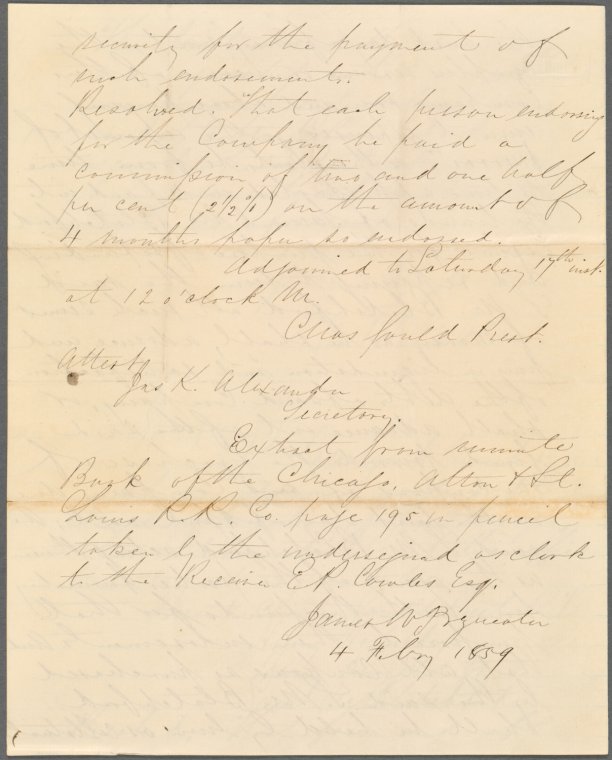 security for the payment of
such endorsements.
Resolved. That each person endorsing
for the Company be paid a
commission of two and one half
per cent (2 1/2 %) on the amount of
4 months paper so endorsed.
Adjourned to Saturday 17th inst.
at 12 o'clock M.
Chas Gould Prest.
Attest
Jas K. Alexander
Secretary.
Extract from minute
Book of the Chicago, Alton & St.
Louis R.R. Co. page 195 in pencil
taken by the undersigned as clerk
to the Receiver E.P. Cowles Esq.
James W
4 Feby 1859